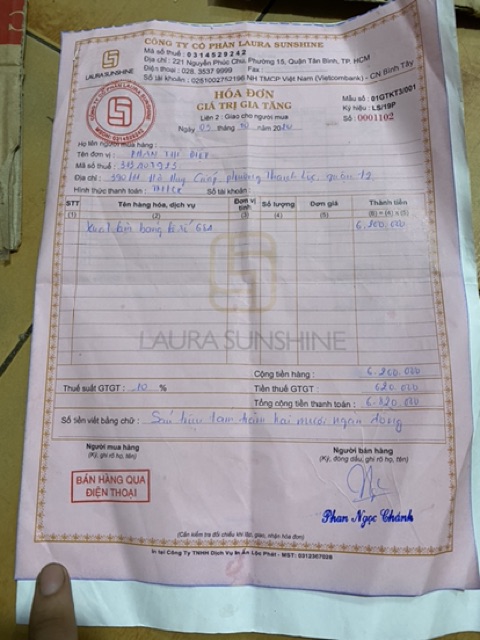 CÔNG TY CỔ PHẦN LAURA SUNSHINE
Mã số thuế : 0314529242
Địa chỉ : 221 Nguyễn Phúc Chu, Phường 15, Quận Tân Bình, TP. HCM
Điện thoại : 028. 3537 9999 Fax :
Số tài khoản : 0251002752196 NH TMCP Việt Nam (Vietcombank) - CN Bình Tây
LAURA SUNSHINE
HÓA ĐƠN
GIÁ TRỊ GIA TĂNG
Liên 2 : Giao cho người mua
Ngày 05 tháng 10 năm 20
Mẫu số : 01GTKT3/001
Ký hiệu : LS/19P
Số : 0001102
Họ tên người mua hàng :
Tên đơn vị : PHAN THỊ
Mã số thuế :
Địa chỉ : phường Thạnh Lộc, quận 12
Hình thức thanh toán : Số tài khoản :
STT Tên hàng hóa, dịch vụ Đơn vị tính Số lượng Đơn giá Thành tiền
(1) (2) (3) (4) (5) (6) = (4) x (5)
6.200.000
LAURA SUNSHINE
Cộng tiền hàng : 6.200.000
Thuế suất GTGT : 10 % Tiền thuế GTGT : 620.000
Tổng cộng tiền thanh toán : 6.820.000
Số tiền viết bằng chữ : Sáu triệu tám trăm hai mươi ngàn đồng
Người mua hàng Người bán hàng
(Ký, ghi rõ họ, tên) (Ký, đóng dấu, ghi rõ họ, tên)
BÁN HÀNG QUA
ĐIỆN THOẠI
Phan Ngọc Chánh
(Cần kiểm tra đối chiếu khi lập, giao, nhận hóa đơn)
In tại Công Ty TNHH Dịch Vụ In Ấn Lộc Phát - MST: 0312367028